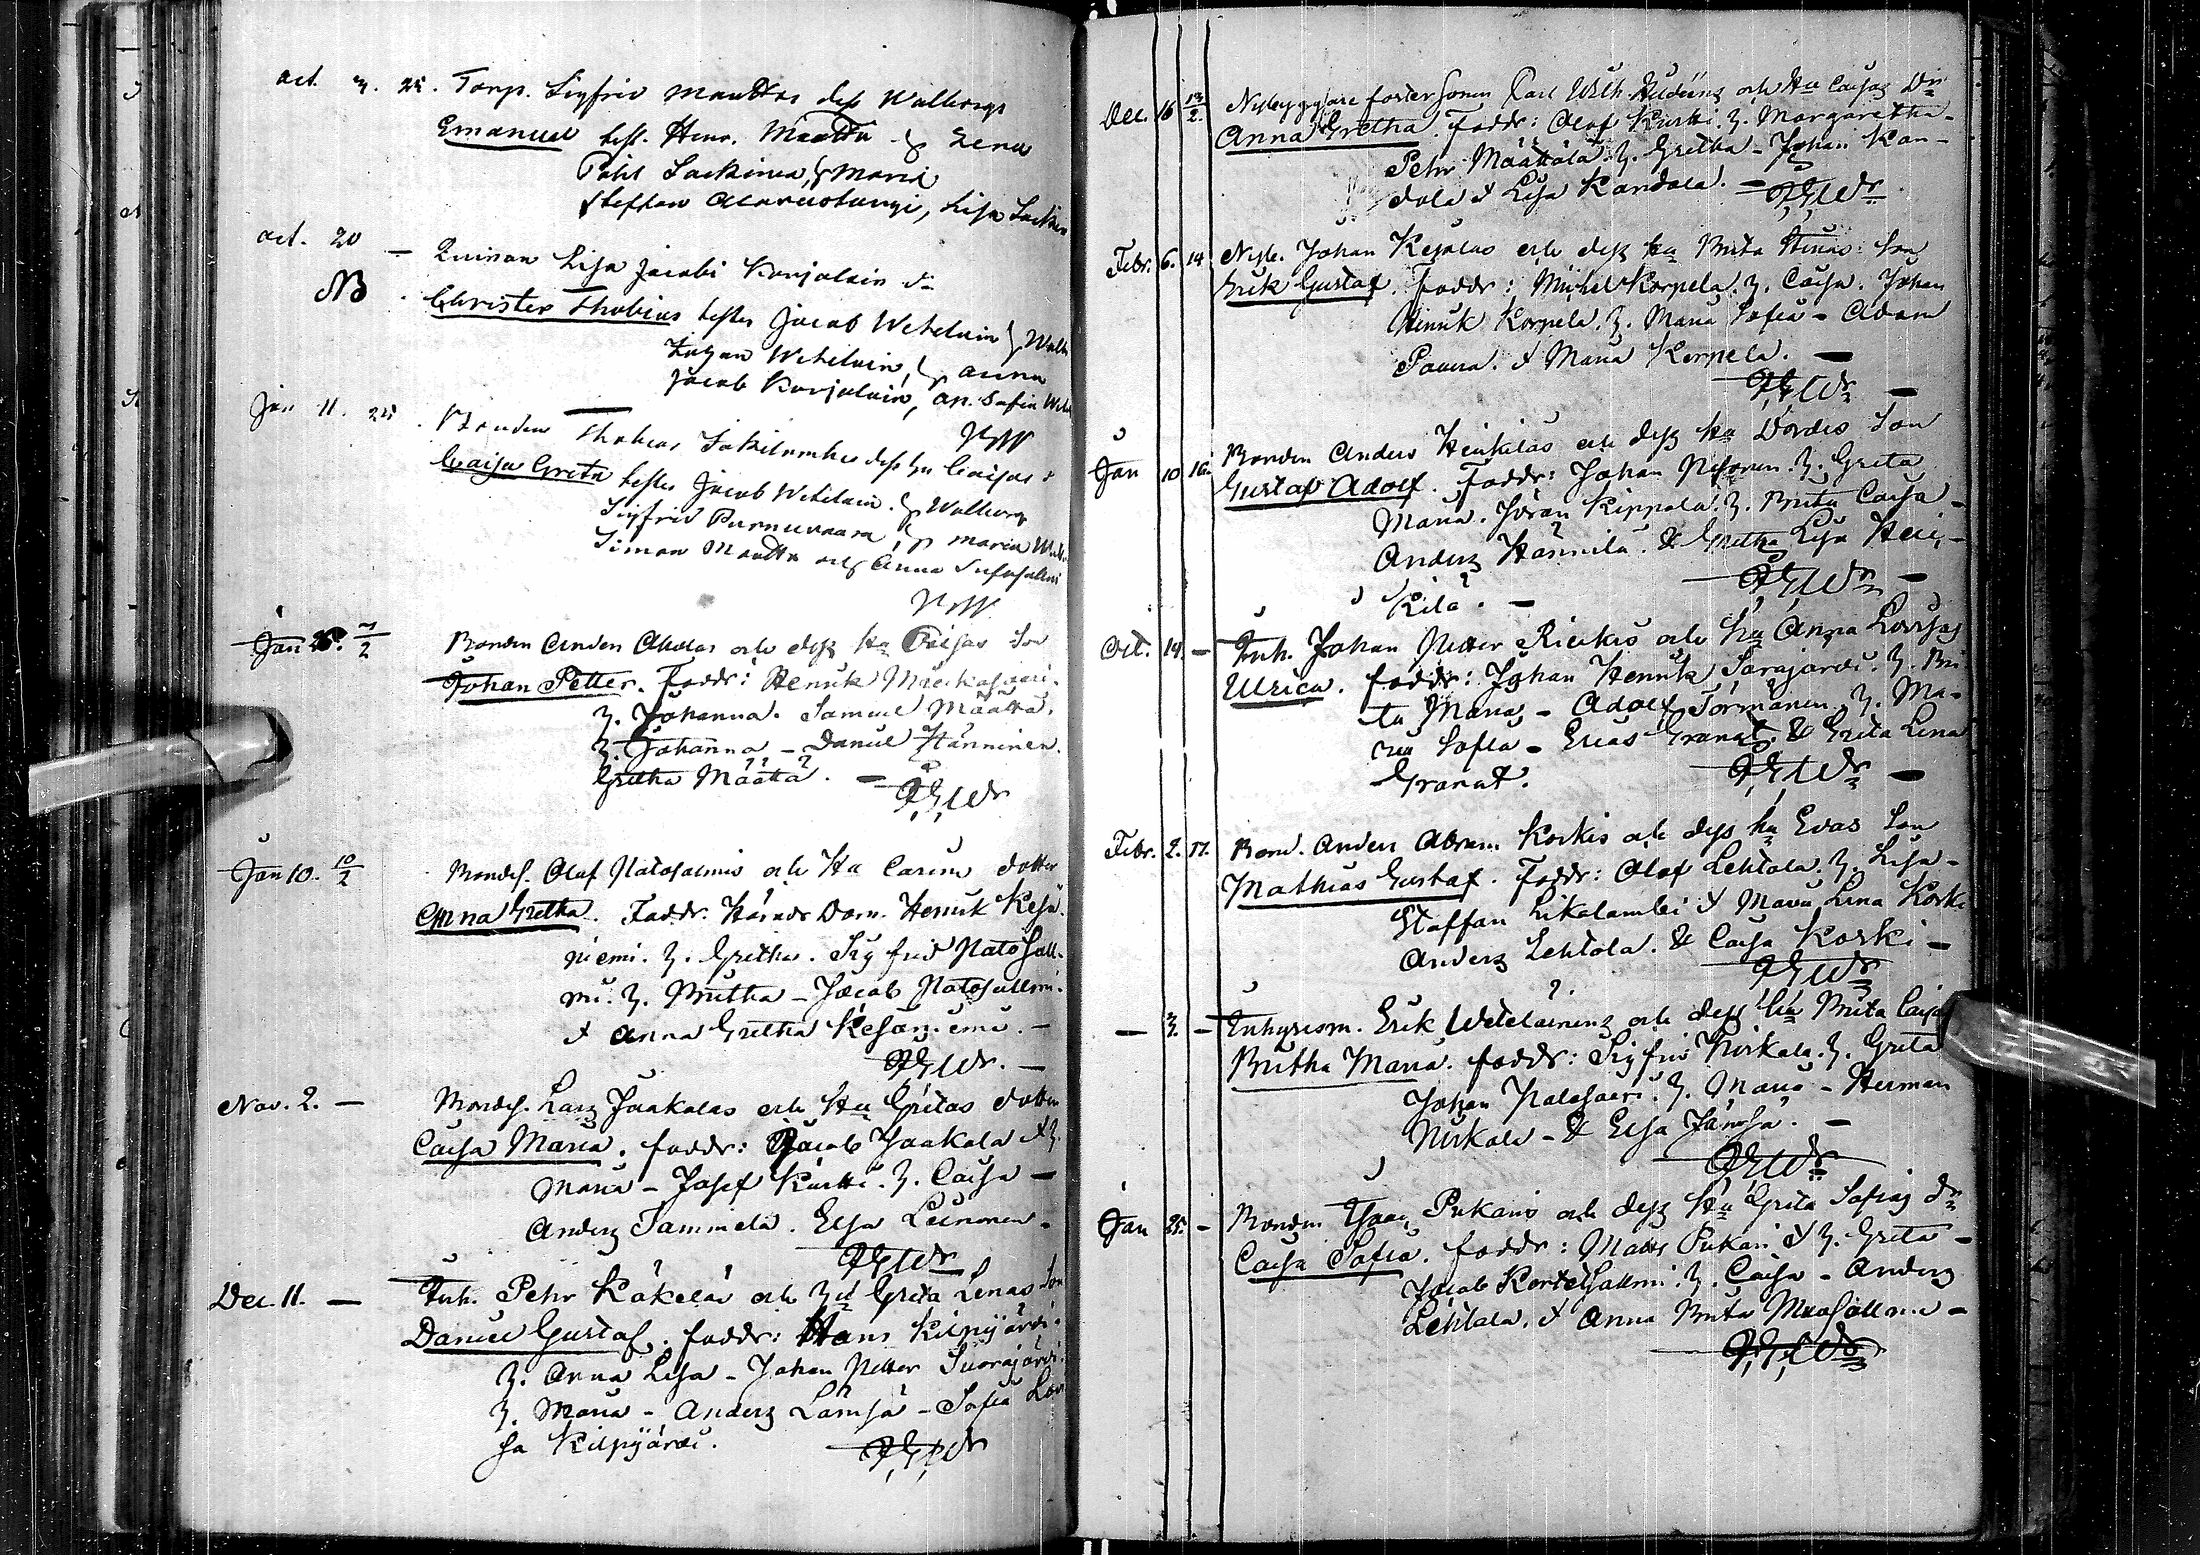 Oct. 3. 25. Torp. Sigfrid Mauttas dess Walborgs
Emanuel test. Henr. Mautta & Lena
Påhl Lackinen, & Maria
Steffan, Lisa
Oct. 20 — Quinnan Lisa Jacobi Karjalain dr
NB. Christer Thobias testes Jacob Wetelain &
Johan Wetelain, & Anna
Jacob Karjalain, An. Safia
Jan 11. 25. Bonden Thobias dess hu Caisas
Caisa Greta testes Jacob Wetelain. & Walborg
Sigfrid Purnuvaara, & Maria
Simon Mautta och Anna
Jan 25. 7/2 Bonden Anders och dess Hu Caisas Son
Johan Petter. Faddr: Henrik
H. Johanna. Samuel Määttä.
H. Johanna – Daniel Hänninen.
Gretha Määttä. —
Jan 10. 10/2 Bondes. Olof Natosalmis och Hu Carins dotter
Anna Gretha. Faddr. Härads Dom. Henrik Kesä-
niemi. H. Gretha. Sigfrid Natosall-
mi. H. Britha – Jacob Natosallmi.
& Anna Gretha Kesäniemi. —
Nov. 2. — Bondes. Lars Jaakolas och Hu Gretas dotter
Caisa Maria. faddr: Jacob Jaakola & H.
Maria – Josef Kurtti. H. Caisa —
Anders Tammela. Elsa Leinonen –
Dec. 11. — Inh. Pehr Käkelä och Hu Greta Lenas Son
Daniel Gustaf. faddr: Hans Kilpijärvi.
H. Anna Lisa – Johan Petter Suorajärvi.
H. Maria – Anders Lämsä – Sofia Lovi
sa Kilpijärvi.
Dec. 16 13/2. Nybyggare fostersonen Carl Wilh. och Hu Caisas Dr
Anna Gretha. Faddr: Olof Kurtti. H. Margaretha –
Pehr Määttälä. H. Gretha – Johan Kan-
dola & Lisa Kandola. —
Febr. 6. 14 Nyb. Johan och dess hu Brita Stinas Son
Erik Gustaf. Faddr: Michel Korpela. H. Caisa. Johan
Henrik Korpela. H. Maria Sofia – Adam
Pauna. & Maria Korpela. —
Jan 10 16. Bonden Anders Heikiläs och dess hu Dordes Son
Gustaf Adolf. Faddr: Johan. H. Greta
Maria. Jöran Kippola. H. Brita Caisa –
Anders Hännilä. & Gretha Lisa Hei-
kilä. —
Oct. 14. — Inh. Johan Petter Riekis och hu Anna Lovisas
Ulrica. faddr: Johan Henrik Sarajärvi. H. Bri
ta Maria – Adolf Törmänen. H. Ma-
ria Sofia – Erias Granat & Greta Lena
Granat. —
Febr. 2. 17. Bond. Anders Abram Korkis och dess hu Evas Son
Mathias Gustaf. Faddr: Olof Lehtola. H. Lisa –
Staffan & Maria Lena Korki
Anders Lehtola. & Caisa Korki –
— 3. — Inhysesm. Erik Wetelainens och dess hu Brita Caisas
Britha Maria. faddr: Sigfrid Nirkala. H. Greta
Johan Palosaari. H. Maria – Herman
Nirkala – & Elsa Jänsä. —
Jan 25. — Bonden Isaac Pukaris och dess Hu Greta Sofias dr
Caisa Sofia. faddr: Matts Pukari & H. Greta –
Jacob Kortesallmi. H. Caisa – Anders
Lehtola. & Anna Brita Maasallmi –